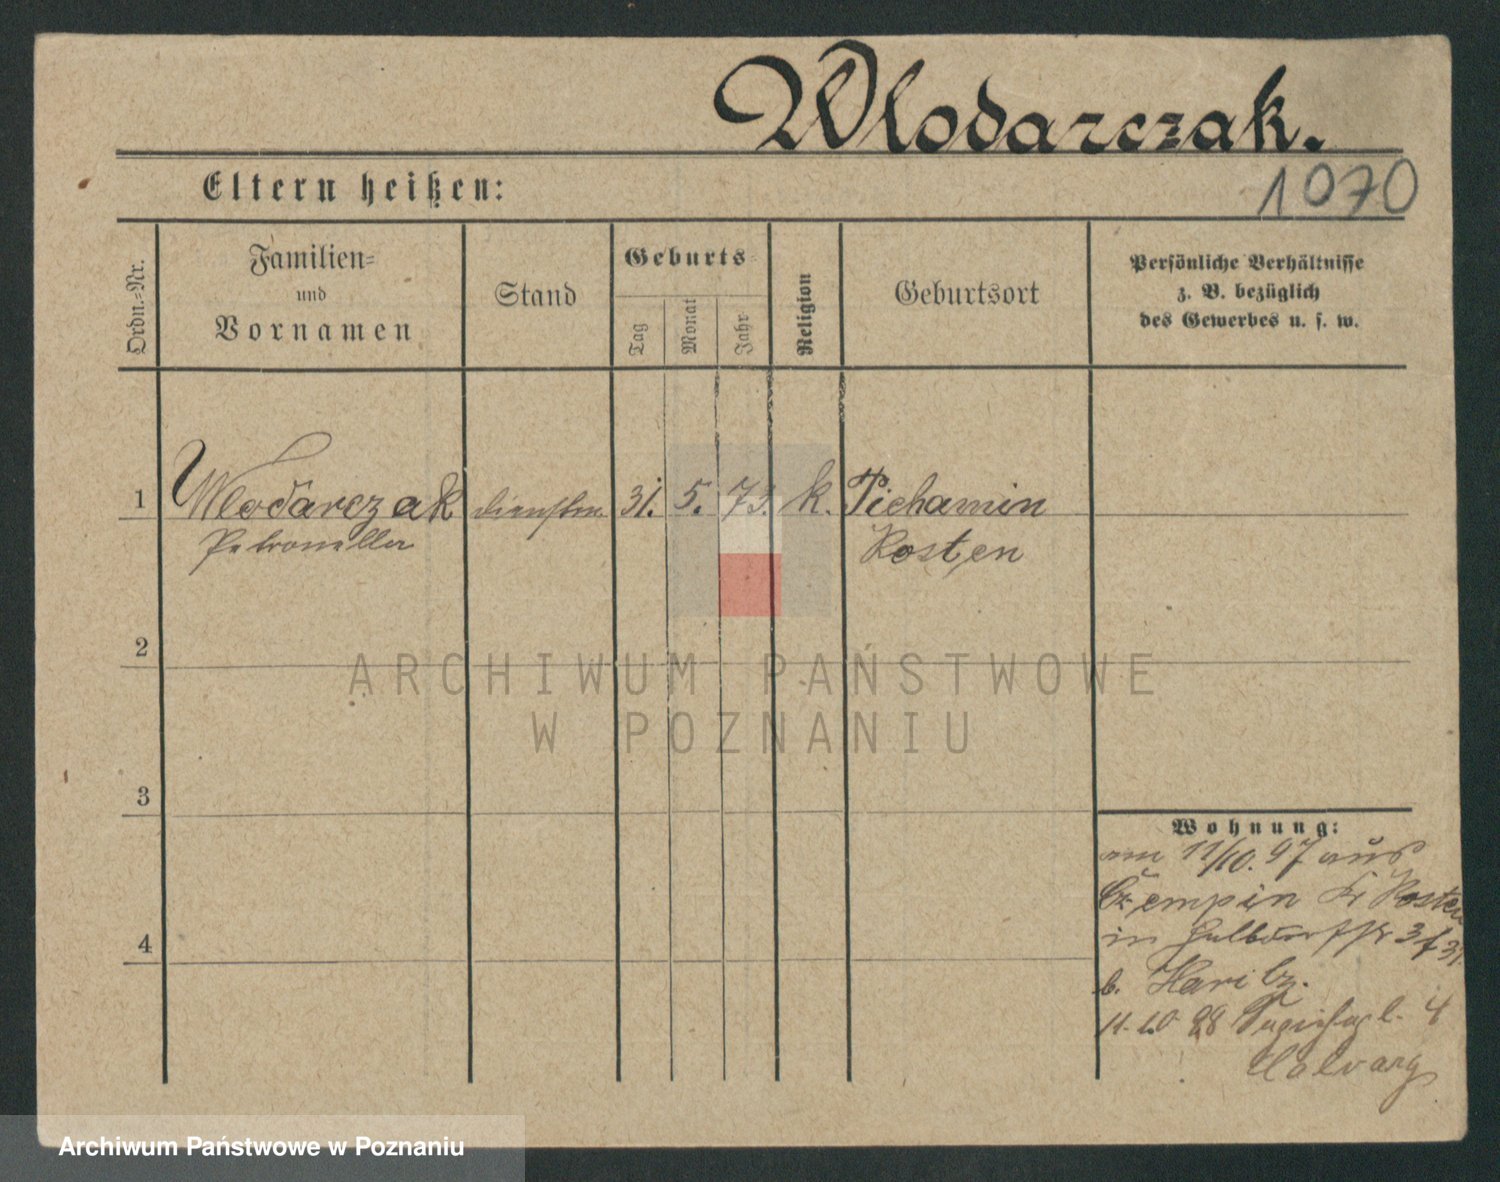 Wlodarczak.
Eltern heißen:
1070
Ordn.-Nr.
Familien-
und
Vornamen
Stand
Geburts-
Tag
Monat
Jahr
Religion
Geburtsort
Persönliche Verhältnisse
z. B. bezüglich
des Gewerbes u. s. w.
1 Wlodarczak 31. 5. 73. k. Pichamin
Petronella Kosten
2
ARCHIWUM PAŃSTWOWE
W POZNANIU
3
4
Wohnung:
am 11/10. 97 aus
Czempin Kr Kosten
in 3
b.
11. 10 98 4
Archiwum Państwowe w Poznaniu